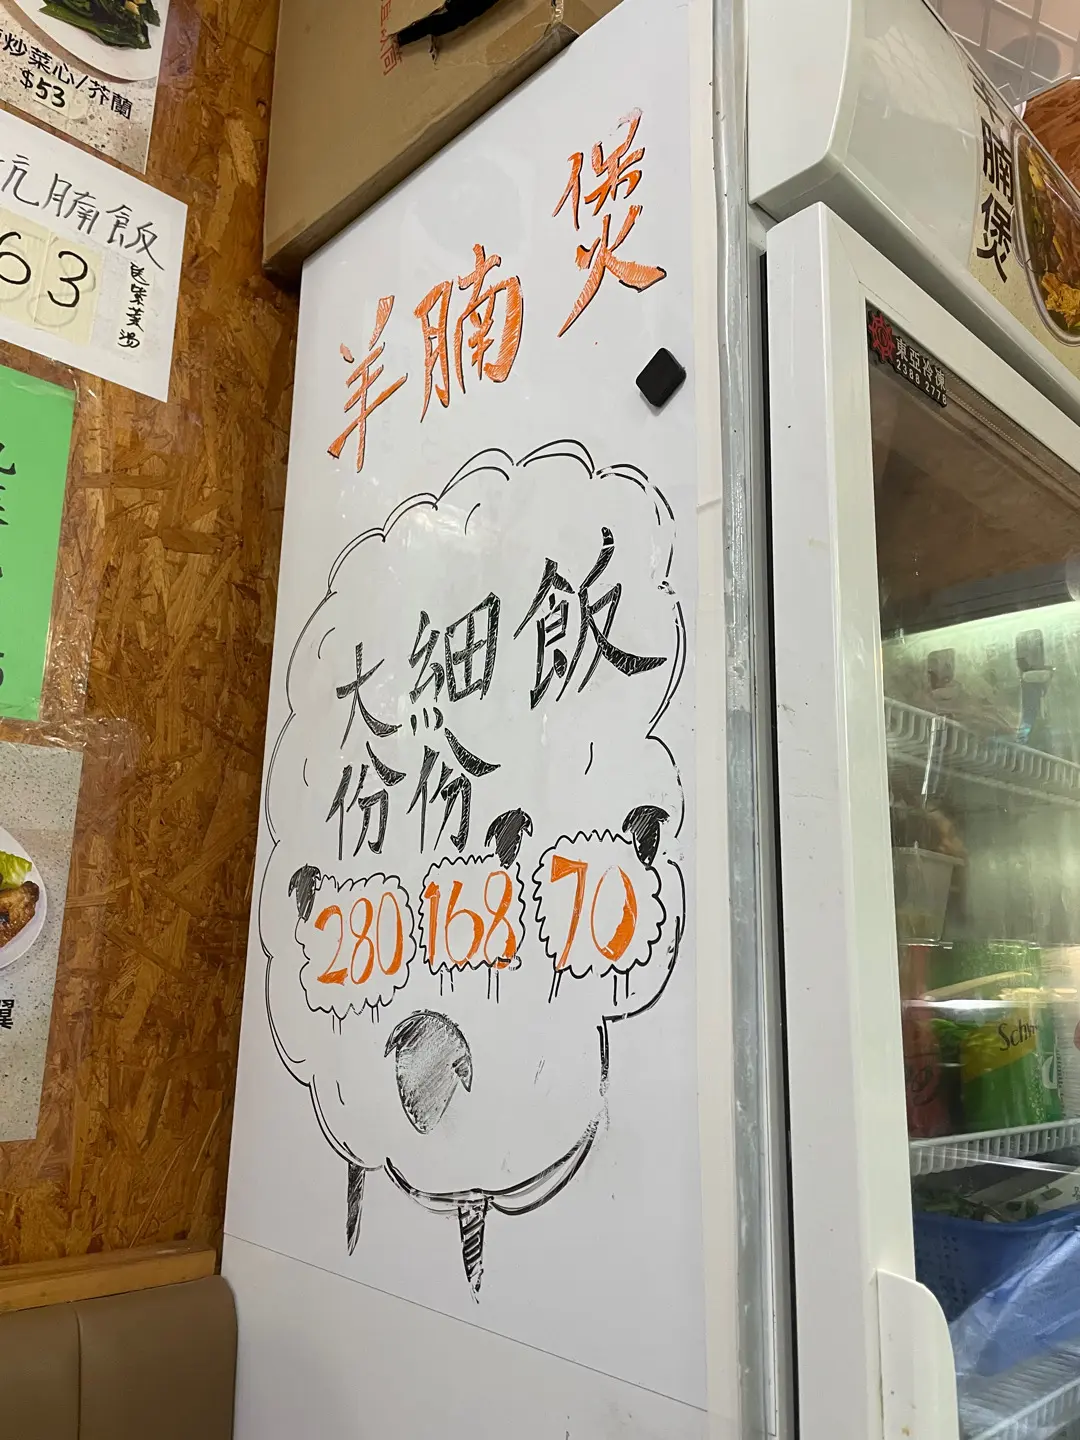 炒菜心/芥蘭
$53
坑腩飯
63
羊腩煲
大份
細份
飯
280
168
70
羊腩煲
東亞冷凍
2388 2778
Schw
翼